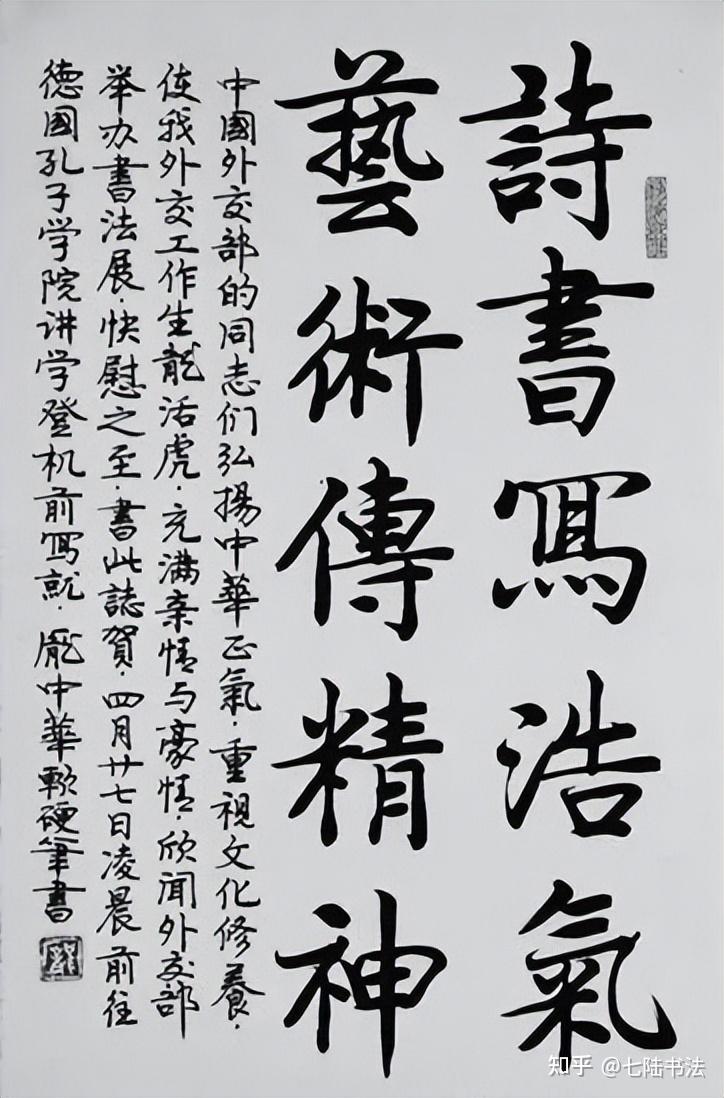 詩書寫浩氣
藝術傳精神
中國外交部的同志们弘揚中華正氣·重視文化修養·
使我外交工作生龍活虎·充满亲情与豪情·欣聞外交部
举办書法展·快慰之至·書此誌賀·四月廿七日凌晨前往
德國孔子学院讲学登机前寫就·龐中華軟硬筆書
知乎 @七陆书法